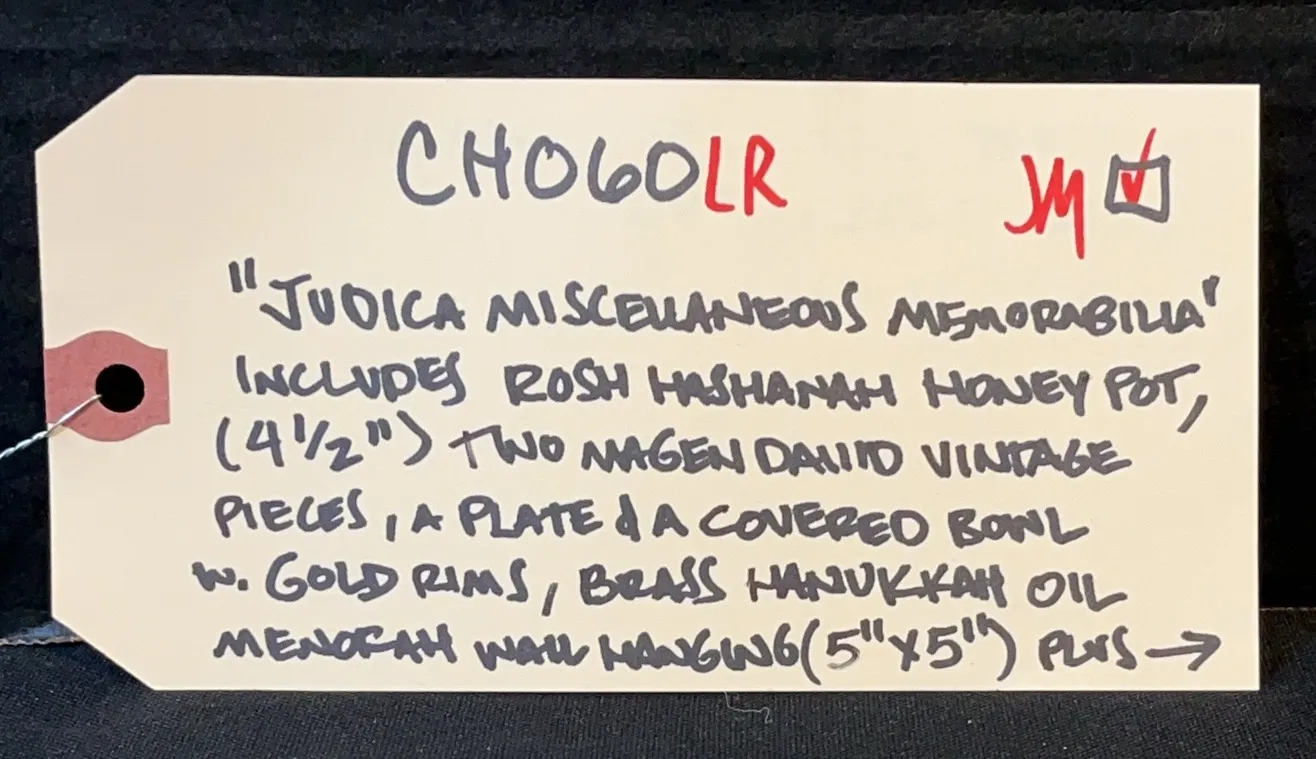 CH060LR JM
"JUDICA MISCELLANEOUS MEMORABILIA"
INCLUDES ROSH HASHANAH HONEY POT,
(4 1/2") TWO MAGEN DAVID VINTAGE
PIECES, A PLATE & A COVERED BOWL
W. GOLD RIMS, BRASS HANUKKAH OIL
MENORAH WALL HANGING (5"X5") PLUS →